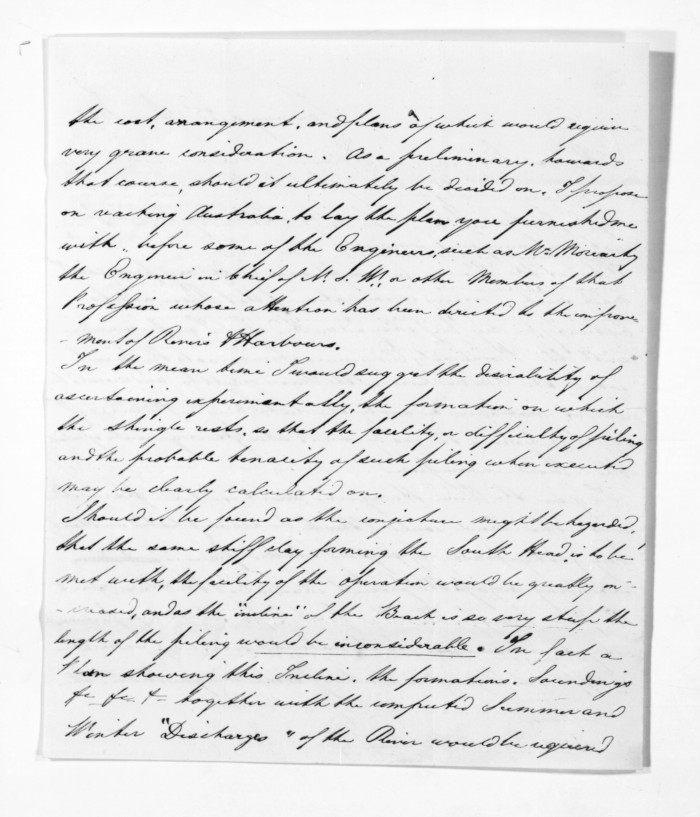 the cost, arrangement, and plans ^ of which would require
very grave consideration. As a preliminary, towards
that course, should it ultimately be decided on, I propose
on reaching Australia, to lay the plan you furnished me
with, before some of the Engineers, such as Mr Moriarty
the Engineer in Chief of N. S. W. or other Members of that
Profession whose attention has been directed to the improve
-ment of Rivers & Harbours.
In the mean time I would suggest the desirability of
ascertaining experimentally, the formation on which
the shingle rests, so that the facility, or difficulty of piling
and the probable tenacity of such piling when executed
may be clearly calculated on.
Should it be found as the conjecture might be hazarded,
that the same stiff clay forming the South Head, is to be
met with, the facility of the operation would be greatly in-
-creased, and as the "incline" of the Beach is so very steep the
length of the piling would be inconsiderable. In fact a
Plan showing this Incline, the formations, Soundings
&c &c &c together with the computed Summer and
Winter "Discharges" of the River would be required